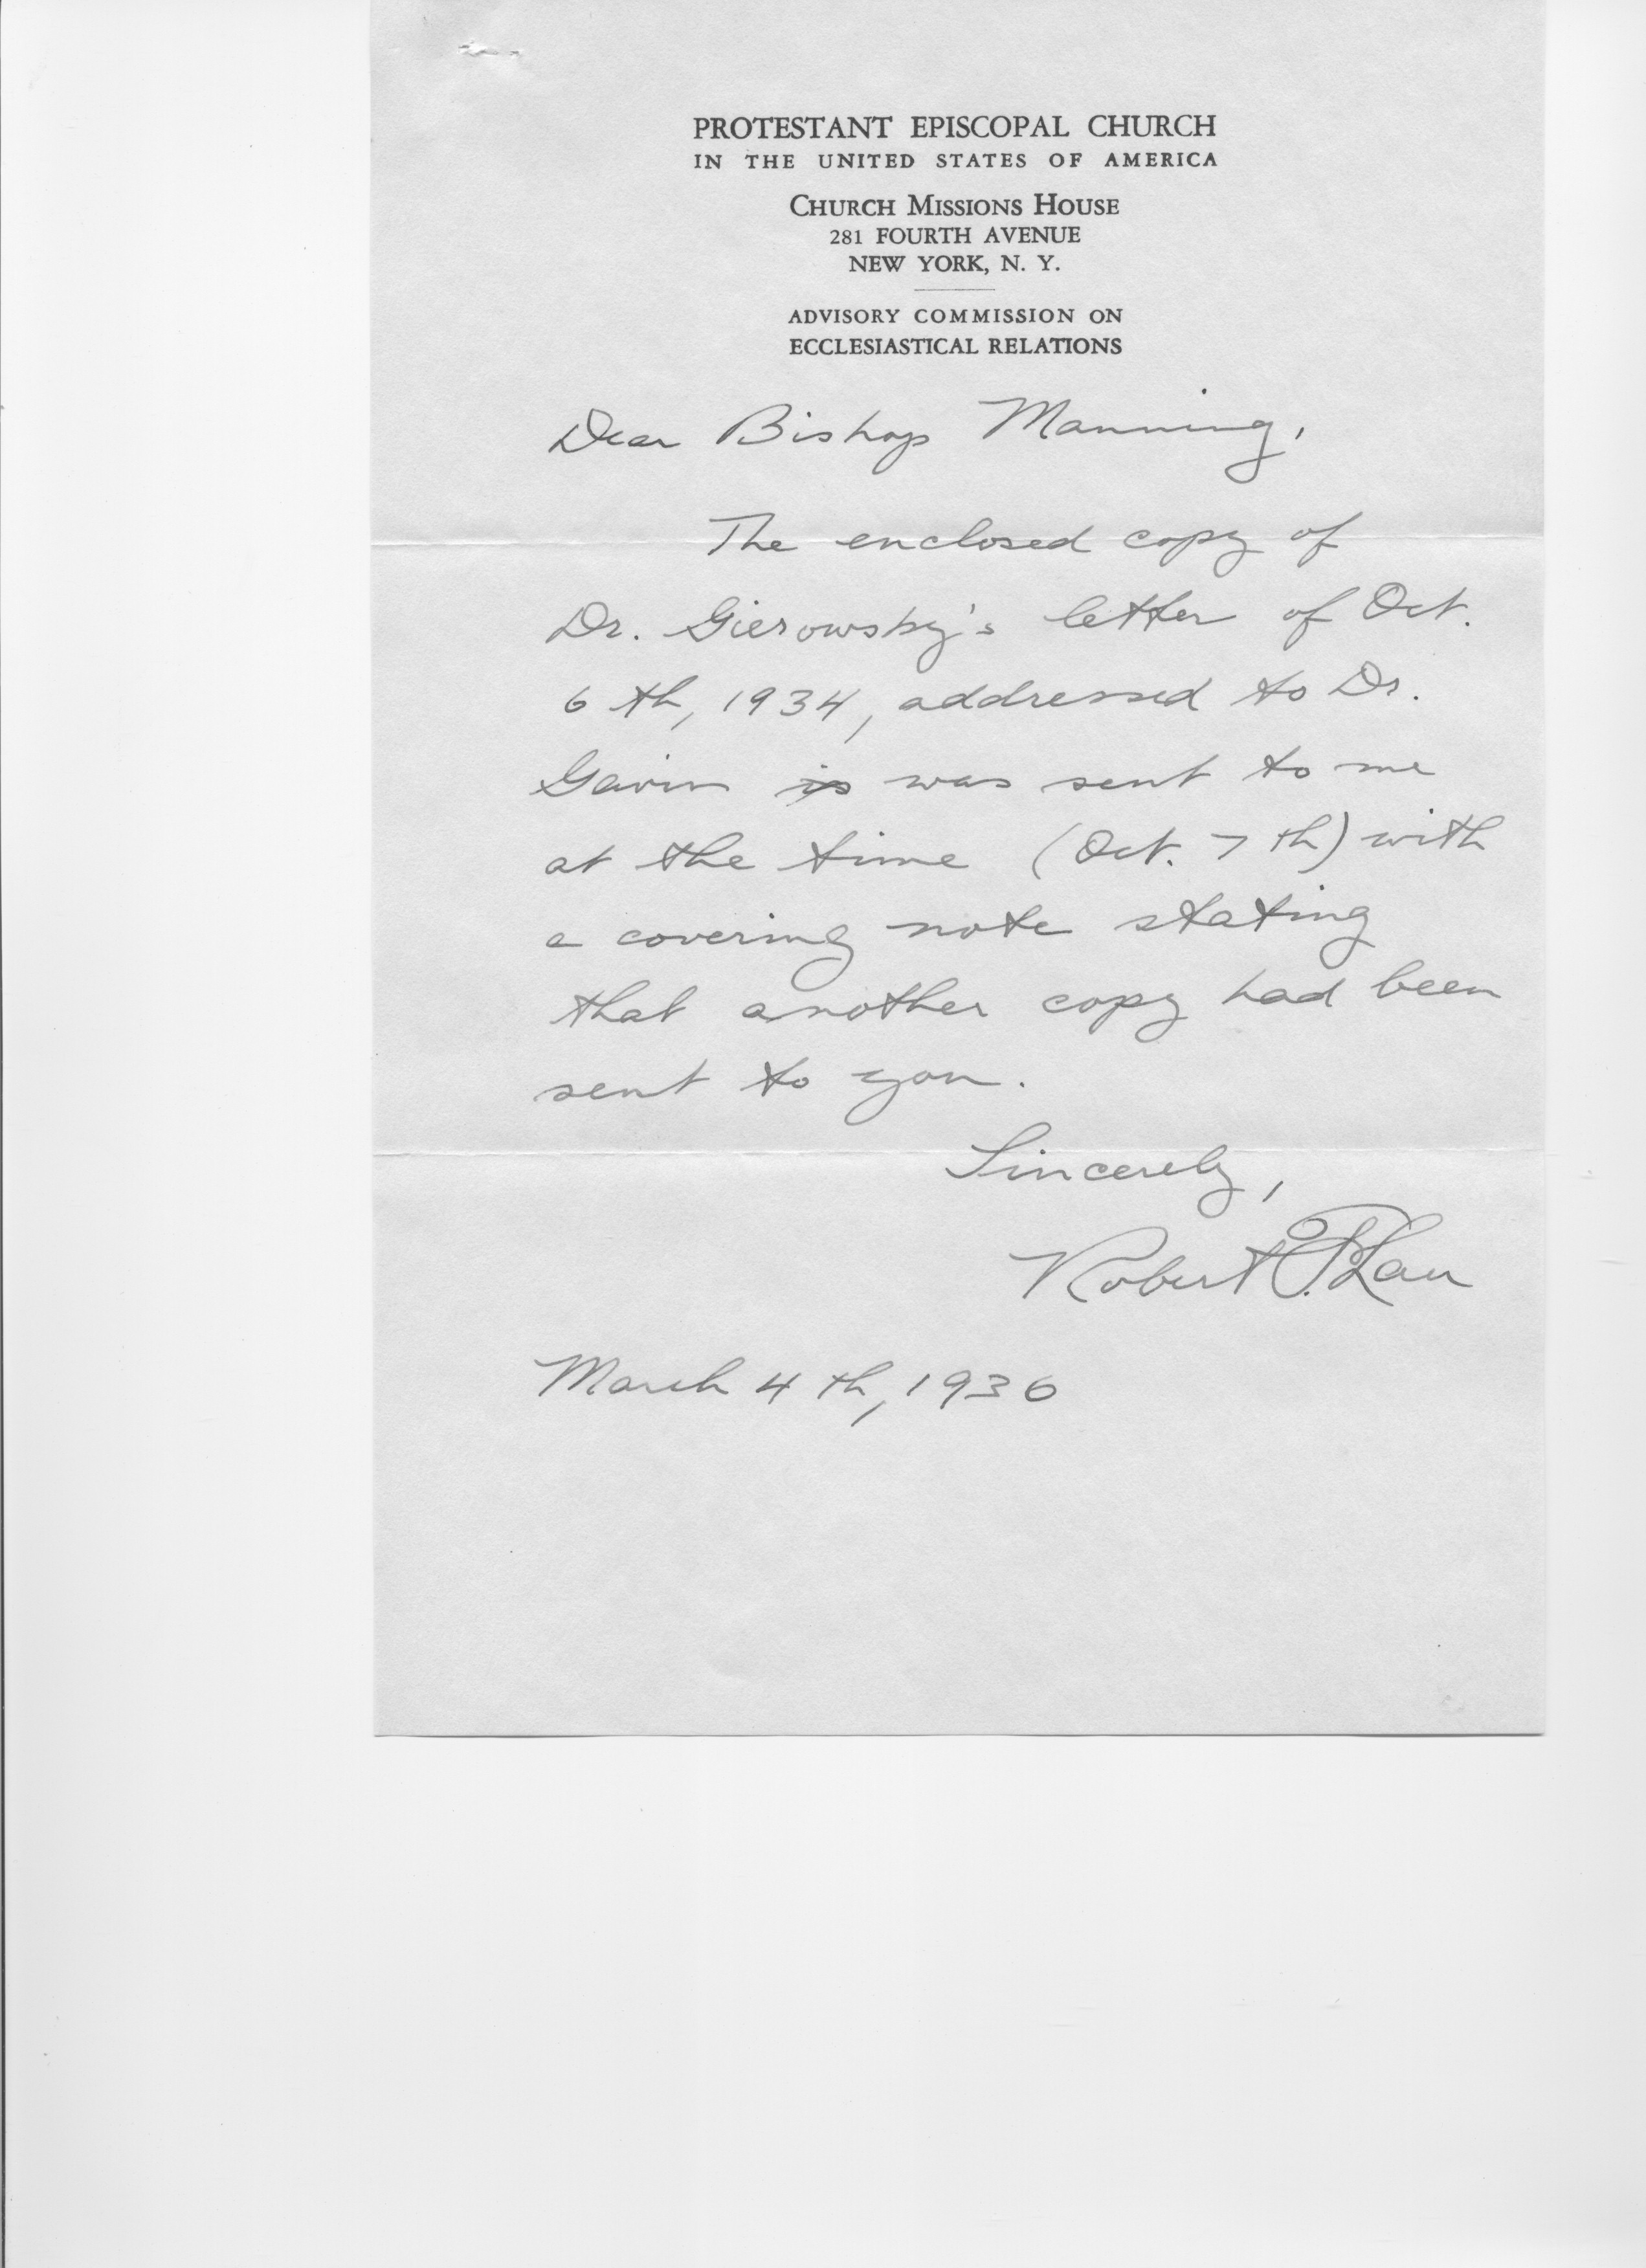 PROTESTANT EPISCOPAL CHURCH
IN THE UNITED STATES OF AMERICA
CHURCH MISSIONS HOUSE
281 FOURTH AVENUE
NEW YORK, N. Y.
ADVISORY COMMISSION ON
ECCLESIASTICAL RELATIONS
Dear Bishop Manning,
The enclosed copy of
Dr. Gierowsky's letter of Oct.
6th, 1934, addressed to Dr.
Gavin is was sent to me
at the time (Oct. 7th) with
a covering note stating
that another copy had been
sent to you.
Sincerely,
Robert
March 4th, 1936